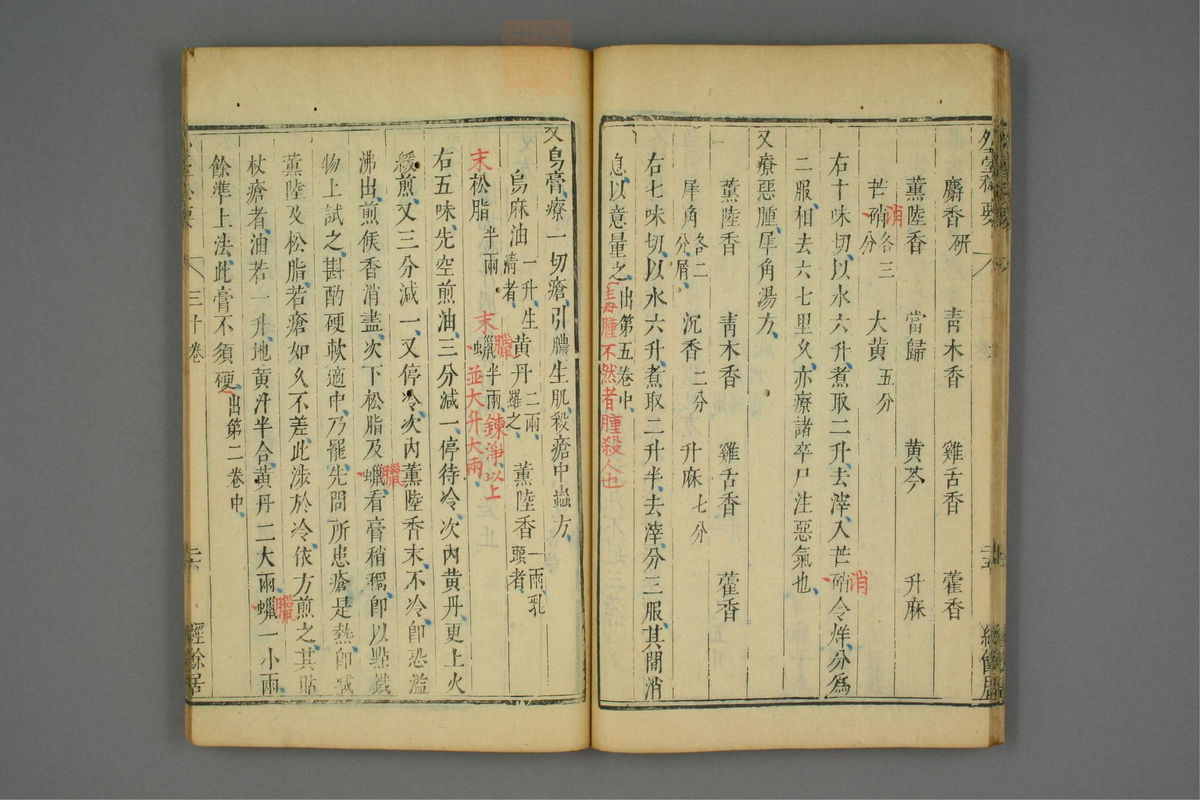 外臺秘要
經餘居
麝香研 青木香 雞舌香 藿香
薰陸香 當歸 黃芩 升麻
芒硝各三分 大黃五分
消
右十味切以水六升煮取二升去滓入芒硝令烊分爲
消
二服相去六七里久亦療諸卒尸注惡氣也
又療惡腫犀角湯方
薰陸香 青木香 雞舌香 藿香
犀角各二分屑 沉香二分 升麻七分
右七味切以水六升煮取二升半去滓分三服其間消
息以意量之出第五卷中
毒腫不然者腫殺人也
又烏膏療一切瘡引膿生肌殺瘡中蟲方
烏麻油一升生清者 黃丹二兩羅之 薰陸香一兩乳頭者
末松脂半兩 末蠟半兩
臘
鍊淨以上
並大升大兩
右五味先空煎油三分減一停待冷次內黃丹更上火
緩煎又三分減一又停冷次內薰陸香末不冷卽恐溢
沸出煎候香消盡次下松脂及蠟看膏稍稠卽以點鐵
臘
物上試之斟酌硬軟適中乃罷先問所患瘡是熱卽減
薰陸及松脂若瘡如久不差此涉於冷依方煎之其貼
杖瘡者油若一升地黃汁半合黃丹二大兩蠟一小兩
臘
餘準上法此膏不須硬出第二卷中
三十卷
二六
經餘居